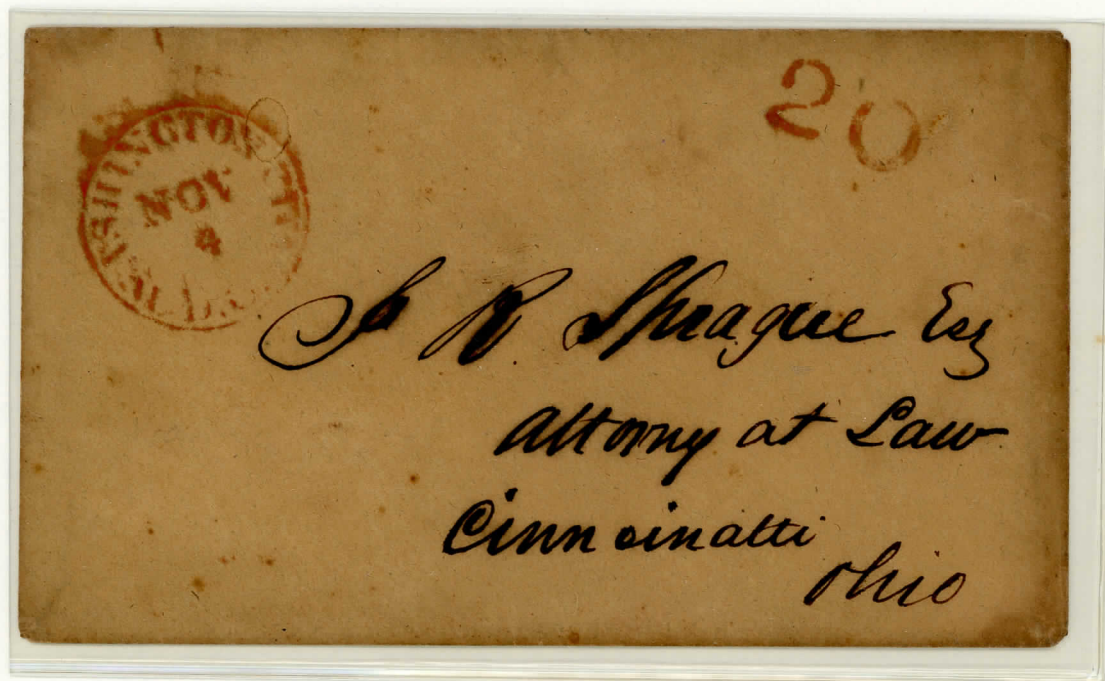 WASHINGTON CITY D.C.
NOV
4
20
J R Sprague Esq
Attorny at Law
Cinncinatti
Ohio